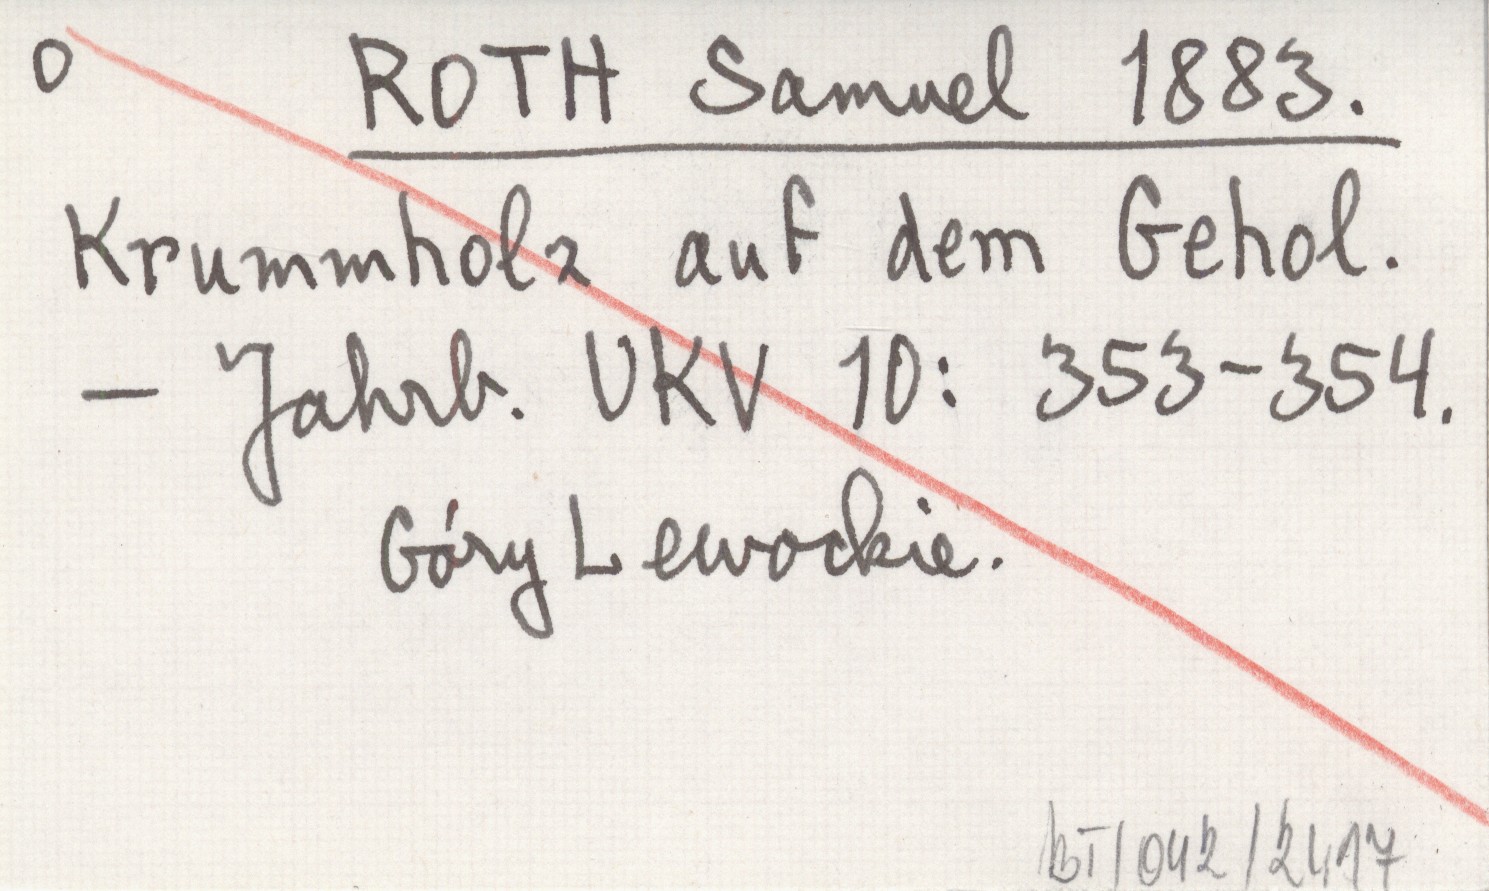 O ROTH Samuel 1883.
Krummholz auf dem Gehol.
– Jahrb. UKV 10: 353-354.
Góry Lewockie.
BT/042/2417